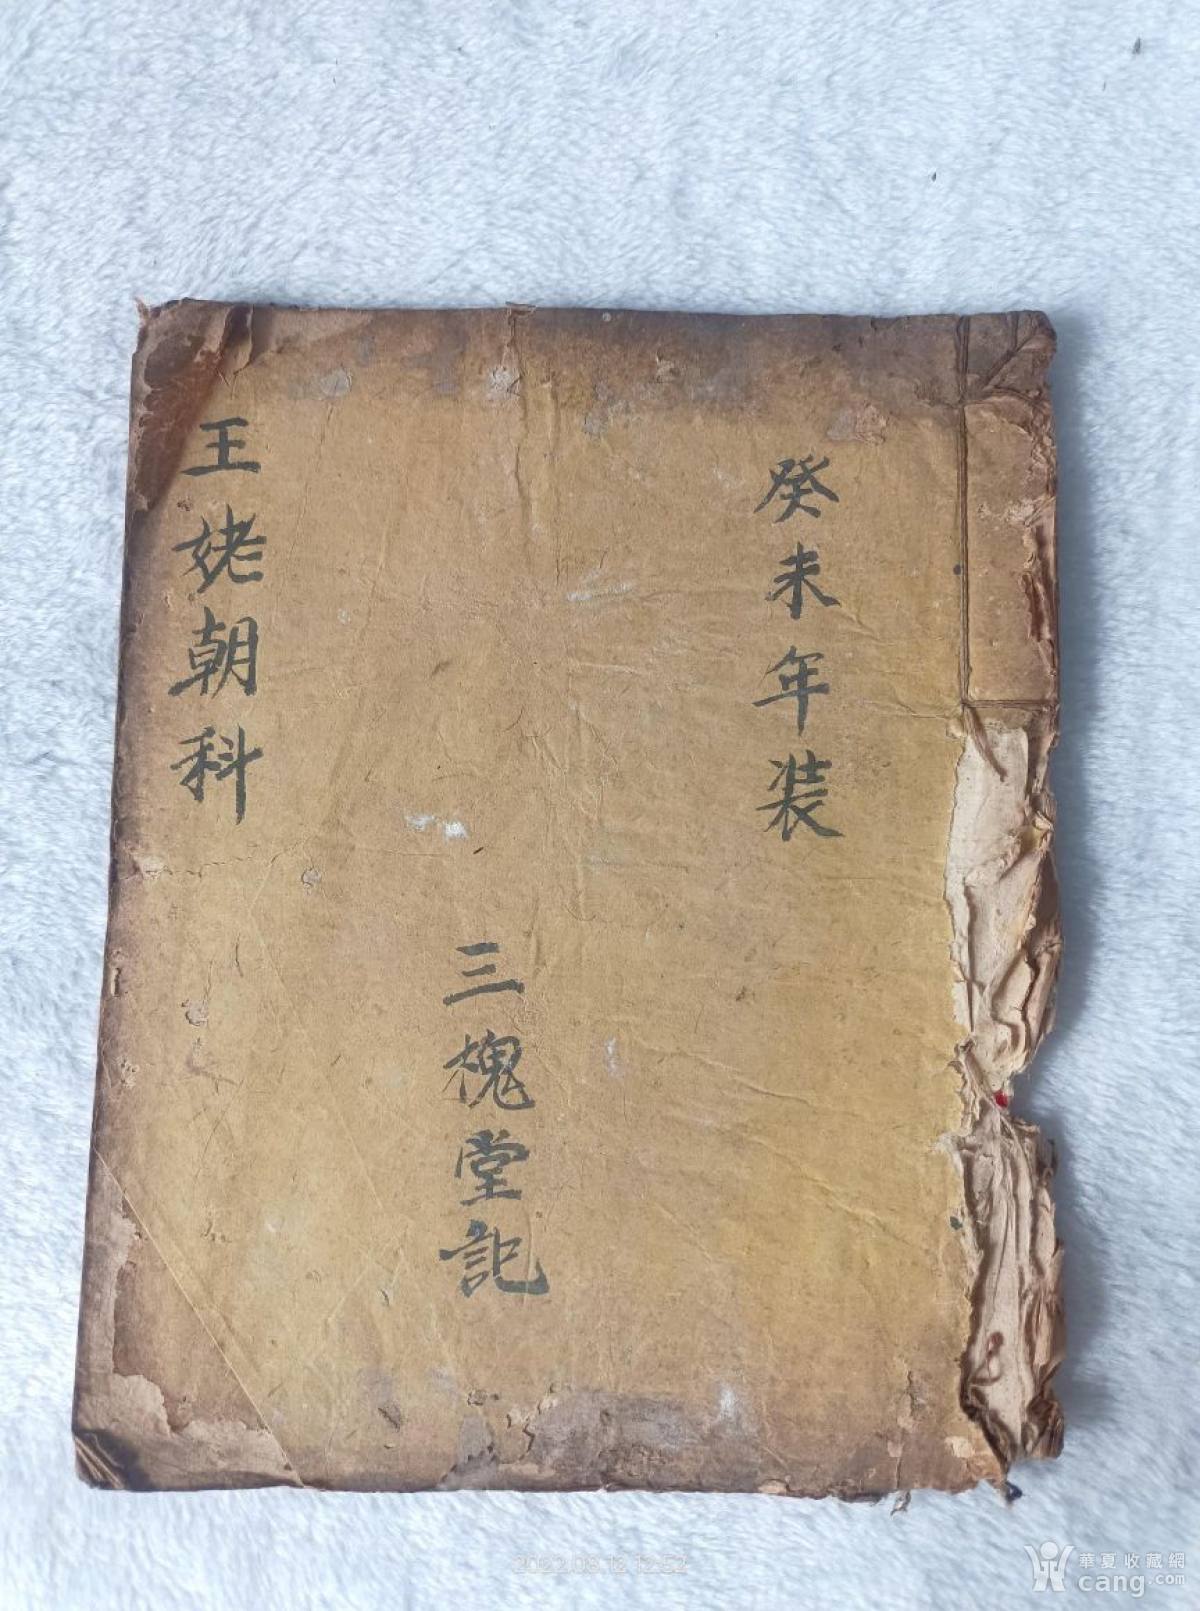 癸未年装
三槐堂記
王姥朝科
2022.08.12 12:52
華夏收藏網
cang.com